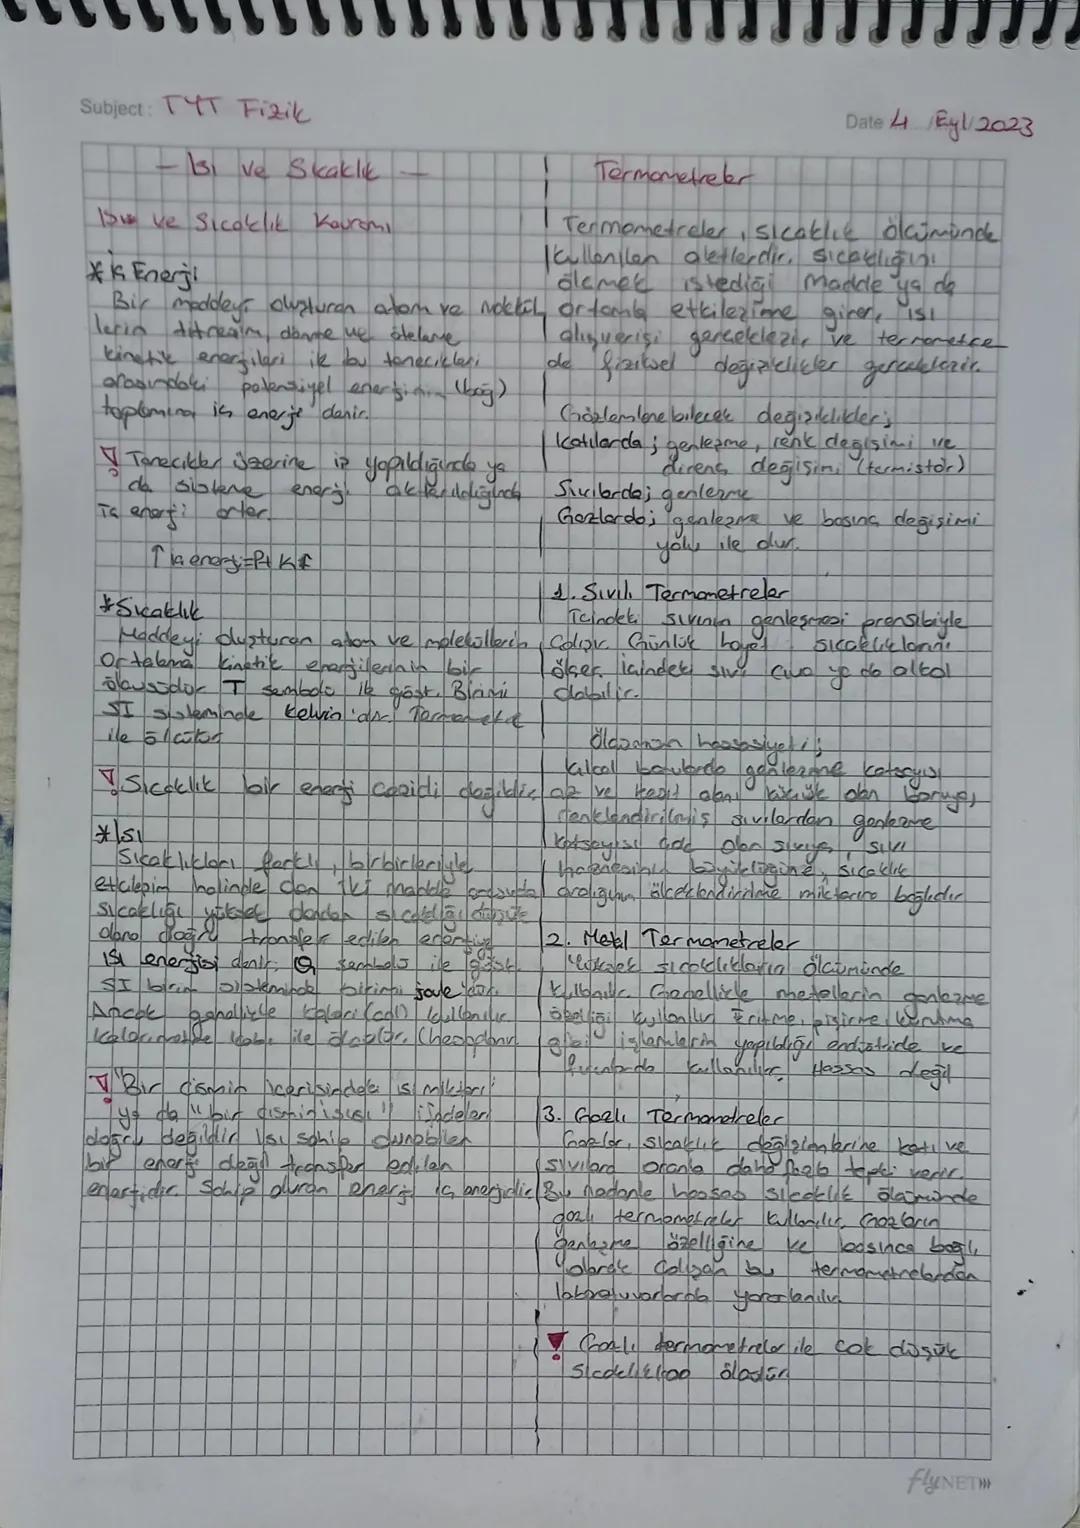 Subject: TYT Fizik
Date 4 /Eyl/ 2023
- Isı ve Sıcaklık -
Isı ve Sıcaklık Kavramı
* İç Enerji
Bir maddeyi oluşturan atom ve molekül
lerin titreşim, dönme ve öteleme
kinetik enerjileri ile bu tanecikleri
arasındaki potansiyel enerjinin (bağ)
toplamına iç enerji denir.
Tanecikler üzerine iş yapıldığında ya
da sisteme enerji aktarıldığında
İç enerji artar.
↑ iç enerji=P+ K
* Sıcaklık
Maddeyi oluşturan atom ve moleküllerin
Ortalama kinetik enerjilerinin bir
ölçüsüdür T sembolü ile göst. Birimi
SI sisteminde kelvin'dir. Termometre
ile ölçülür
Sıcaklık bir enerji çeşidi değildir
* Isı
Sıcaklıkları farklı, birbirleriyle
etkileşim halinde olan iki madde arasında
Sıcaklığı yüksek olandan sıcaklığı düşük
olana doğru transfer edilen enerjiye
ısı enerjisi denir. Q sembolü ile göst.
SI birim sisteminde birimi joule'dür.
Ancak genellikle kalori (cal) kullanılır
kalorimetre kabı ile
"Bir cismin içerisindeki ısı miktarı"
ya da "bir cismin ısısı" ifadeleri
doğru değildir Isı sahip olunabilen
bir enerji değil transfer edilen
enerjidir. Sahip olunan enerji iç enerjidir
Termometreler
Termometreler, sıcaklık ölçümünde
kullanılan aletlerdir. Sıcaklığını
ölçmek istediği madde ya da
ortamla etkileşime girer, ısı
alışverişi gerçekleşir ve termometre
de fiziksel değişiklikler gerçekleşir.
Gözlemlenebilecek değişiklikler;
Katılarda; genleşme, renk değişimi ve
direnç değişimi (termistör)
Sıvılarda; genleşme
Gazlarda; genleşme ve basınç değişimi
yolu ile olur.
1. Sıvılı Termometreler
İçindeki sıvının genleşmesi prensibiyle
Çalışır Günlük hayat sıcaklıklarını
ölçer. İçindeki sıvı civa ya da alkol
olabilir.
Ölçümün hassasiyeti;
genleşme katsayısı
az ve kesit alanı küçük olan boruya,
renklendirilmiş sıvılardan genleşme
katsayısı çok olan sıvıya, sıvı
haznesinin büyüklüğüne, sıcaklık
aralığının ölçeklendirilme miktarına bağlıdır
2. Metal Termometreler
Yüksek sıcaklıkların ölçümünde
kullanılır. Genellikle metallerin genleşme
özelliği kullanılır Eritme, pişirme, kurutma
gibi işlemlerin yapıldığı endüstride ve
fırınlarda kullanılır. Hassas değil
3. Gazlı Termometreler
Gazlar, sıcaklık değişimlerine katı ve
sıvılara oranla daha fazla tepki verir.
Bu nedenle hassas sıcaklık ölçümünde
gazlı termometreler kullanılır. Gazların
genleşme özelliğine ve basınca bağlı
olarak çalışan bu termometrelerden
laboratuvarlarda yararlanılır
Gazlı termometreler ile çok düşük
sıcaklıklar ölçülür
flyNET